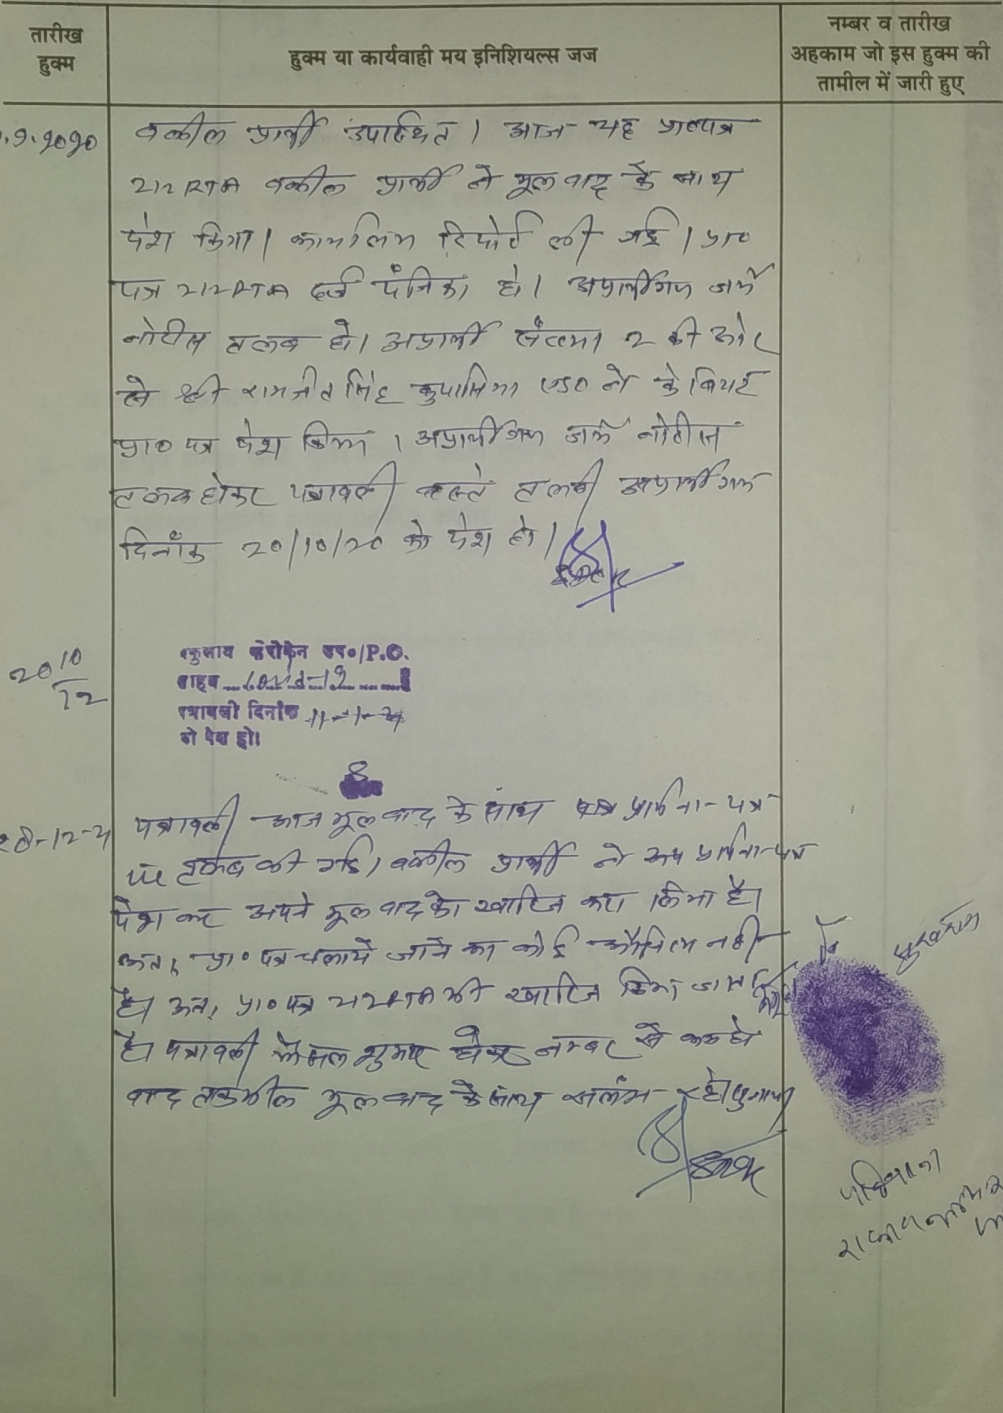 तारीख
हुक्म
हुक्म या कार्यवाही मय इनिशियल्स जज
नम्बर व तारीख
अहकाम जो इस हुक्म की
तामील में जारी हुए
.9.2020
वकील प्रार्थी उपस्थित। आज यह
212 RTA वकील प्रार्थी ने मूल वाद के साथ
पेश किया। रिपोर्ट ली गई। प्रा०
पत्र 212 RTA दर्ज पंजिका हो। अप्रार्थीगण जर्ये
नोटीस तलब हो। अप्रार्थी संख्या 2 की ओर
से श्री ने केवियट
प्रा० पत्र पेश किया। अप्रार्थीगण जर्ये नोटीस
तलब होकर पत्रावली वास्ते तलबी अप्रार्थीगण
दिनांक 20/10/20 को पेश हो।
20 10
12
P.O.
साहब Covid-19
पत्रावली दिनांक 11-1-21
को पेश हो।
पत्रावली आज मूल वाद के साथ प्रार्थना-पत्र
तलब की गई। वकील प्रार्थी ने प्रार्थना-पत्र
पेश कर अपने मूल वाद को खारिज करा लिया है।
अतः प्रा० पत्र चलाये जाने का कोई औचित्य नहीं
है। अतः प्रा० पत्र 212 RTA को खारिज किया जाता
है। पत्रावली फैसल शुमार होकर नम्बर से कम हो
वाद तकमील मूल वाद के साथ संलग्न रहे।